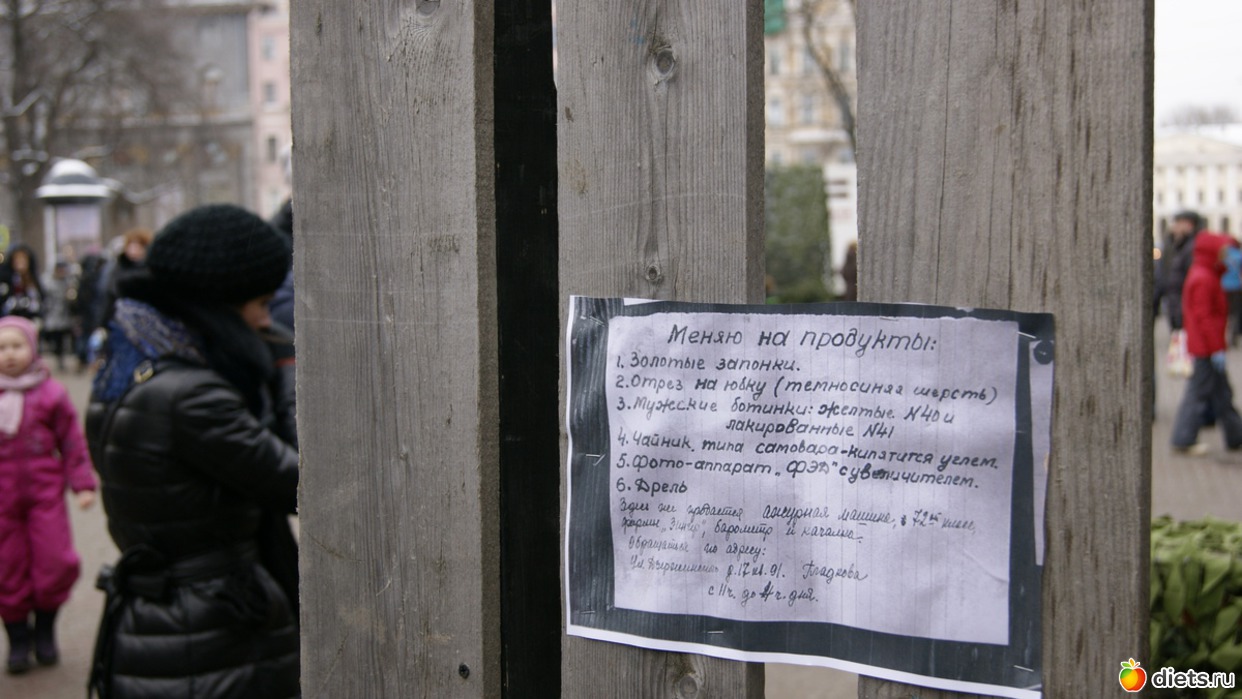 Меняю на продукты:
1. Золотые запонки.
2. Отрез на юбку (темносиняя шерсть)
3. Мужские ботинки: желтые №40 и
лакированные №41
4. Чайник типа самовара-кипятится углем.
5. Фото-аппарат „ФЭД" с увеличителем.
6. Дрель
Здесь же продается ажурная машина, 72
барометр и качалка.
Обращаться по адресу:
Ул. Дзержинского д. 17 кв. 91.
с 11 ч. до 4 ч. дня.
diets.ru